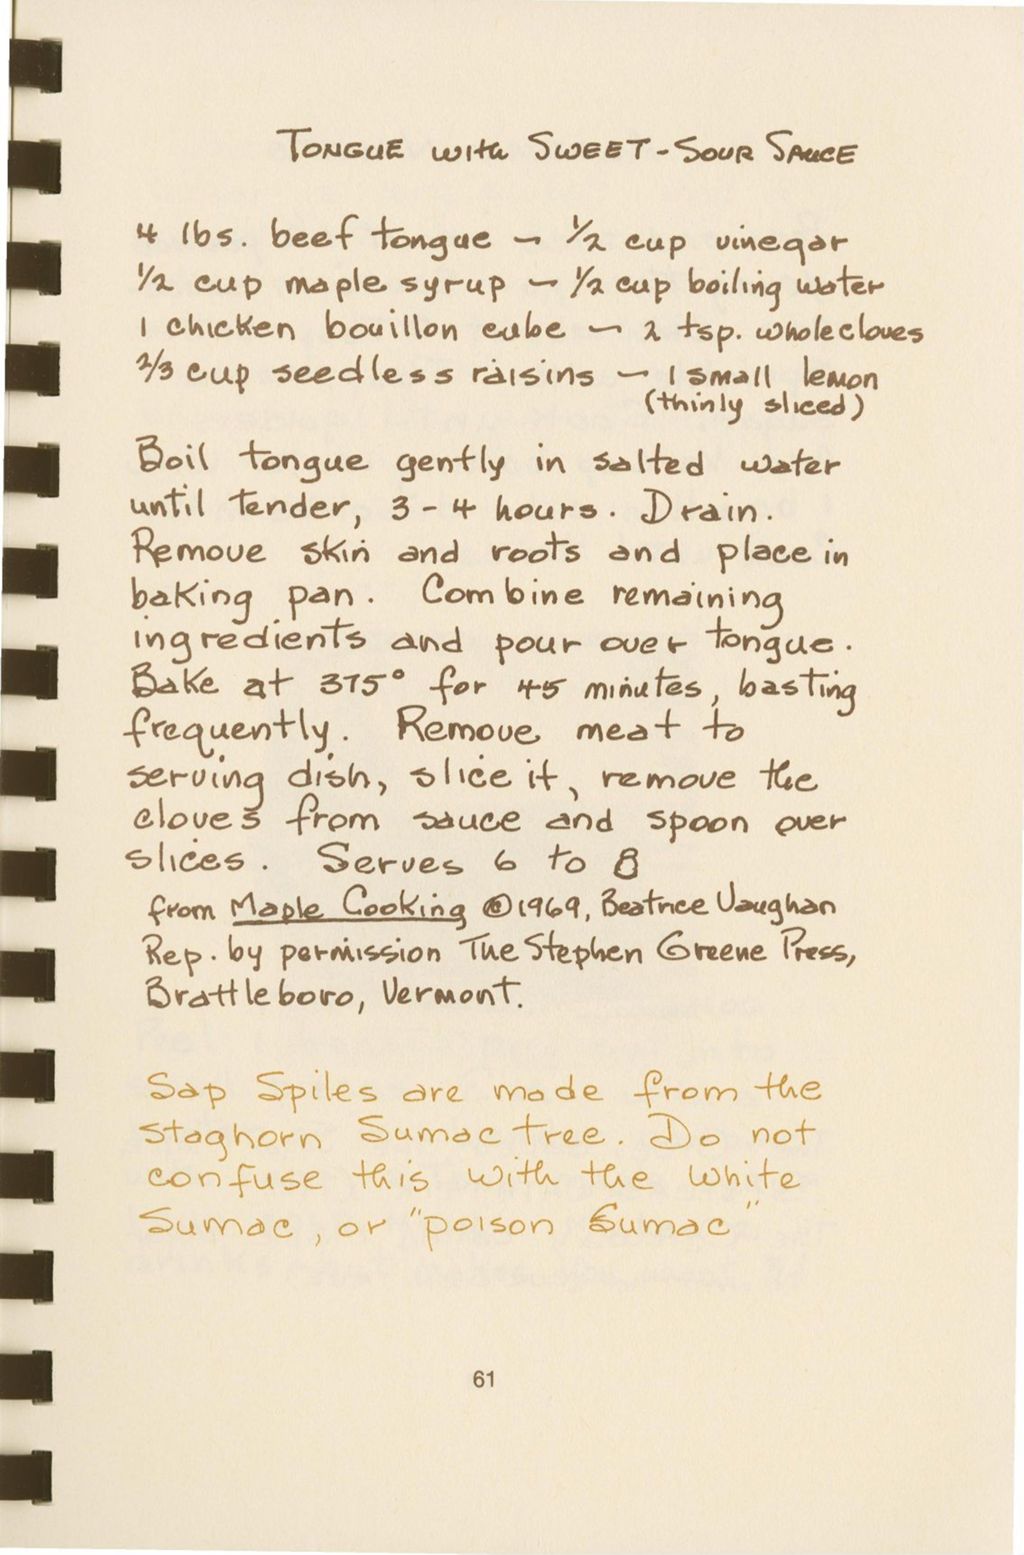 TONGUE with SWEET-SOUR SAUCE
4 lbs. beef tongue — 1/2 cup vinegar
1/2 cup maple syrup — 1/2 cup boiling water
1 chicken bouillon cube — 2 tsp. whole cloves
2/3 cup seedless raisins — 1 small lemon
(thinly sliced)
Boil tongue gently in salted water
until tender, 3-4 hours. Drain.
Remove skin and roots and place in
baking pan. Combine remaining
ingredients and pour over tongue.
Bake at 375° for 45 minutes, basting
frequently. Remove meat to
serving dish, slice it, remove the
cloves from sauce and spoon over
slices. Serves 6 to 8
from Maple Cooking ©1969, Beatrice Vaughan
Rep. by permission The Stephen Greene Press,
Brattleboro, Vermont.
Sap Spiles are made from the
staghorn Sumac tree. Do not
confuse this with the white
Sumac, or "poison Sumac"
61